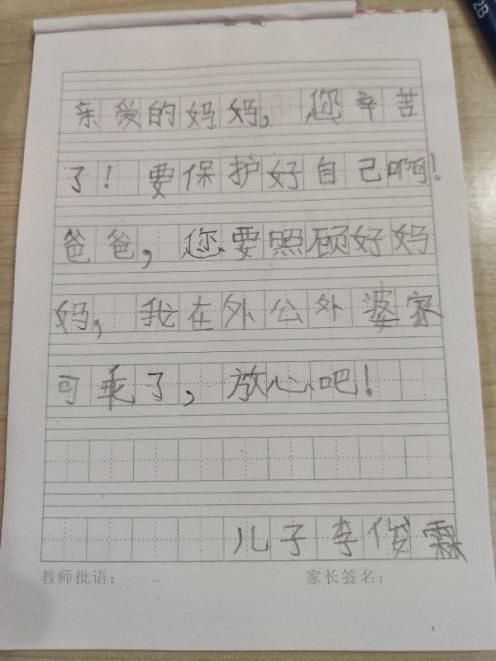 2B
亲爱的妈妈，您辛苦
了！要保护好自己啊！
爸爸，您要照顾好妈
妈，我在外公外婆家
可乖了，放心吧！
儿子李俊霖
教师批语：
家长签名：